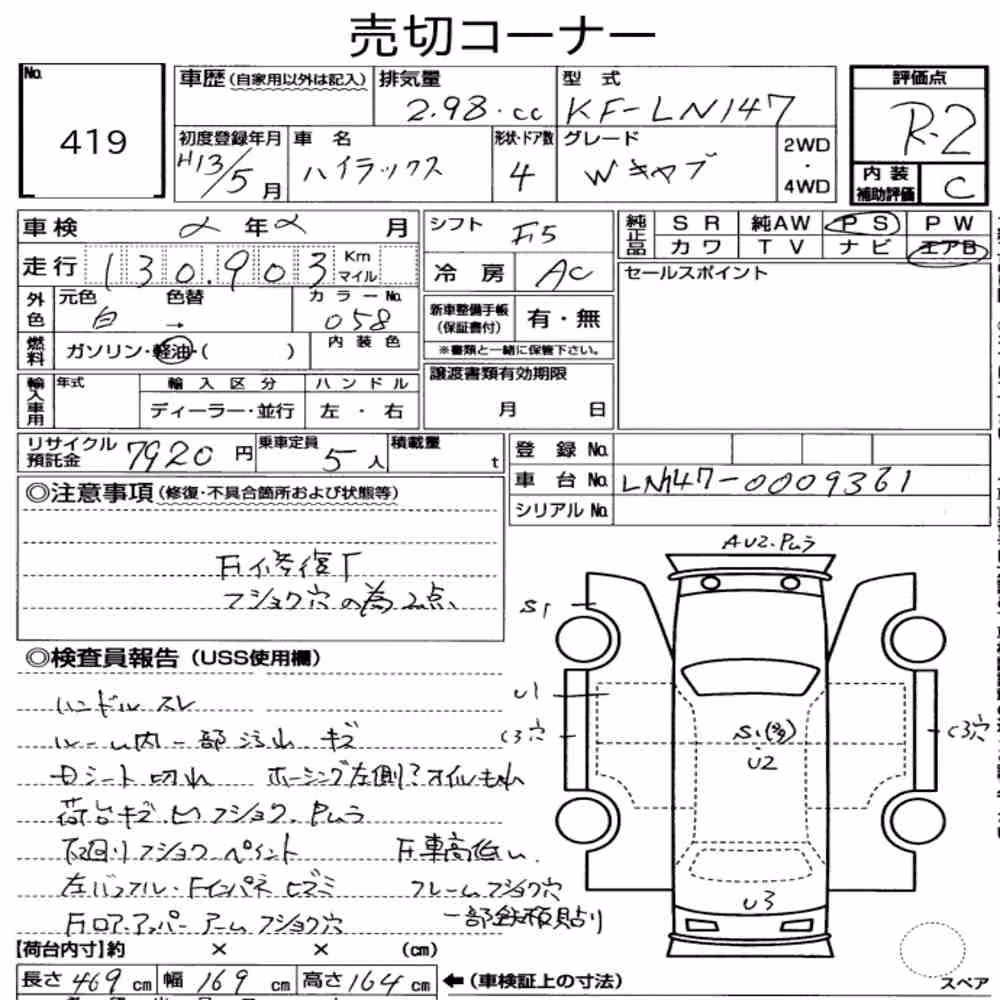 売切コーナー
No.
419
車歴(自家用以外は記入)
排気量
2.98.cc
型式
KF-LN147
評価点
R-2
初度登録年月
H13/5月
車名
ハイラックス
形状・ドア数
4
グレード
Wキャブ
2WD
・
4WD
内装
補助評価
C
車検
年
月
シフト
F5
純正品
SR
純AW
PS
PW
カワ
TV
ナビ
エアB
走行
130.903
Km
マイル
冷房
AC
セールスポイント
外色
元色
色替
白 →
カラーNo.
058
新車整備手帳
(保証書付)
有・無
※書類と一緒に保管下さい。
燃料
ガソリン・軽油・( )
内装色
輸入車用
年式
輸入区分
ハンドル
ディーラー・並行
左・右
譲渡書類有効期限
月 日
リサイクル
預託金
7920円
乗車定員
5人
積載量
t
登録No.
車台No.
LN147-0009361
シリアルNo.
◎注意事項(修復・不具合箇所および状態等)
フショク穴の為2点
◎検査員報告(USS使用欄)
ハンドルスレ
ルーム内一部汚れ キズ
Dシート切れ ホーシング左側?オイルもれ
荷台キズ.ヒビフショク.Pムラ
下廻りフショクペイント F車高低い.
左バッフル・Fインパネヒズミ フレームフショク穴
Fロアアッパーアームフショク穴
AU2.Pムラ
S1
U1
C3穴
U2
C3穴
U3
スペア
【荷台内寸】約 × × (cm)
長さ469cm 幅169cm 高さ164cm
←(車検証上の寸法)